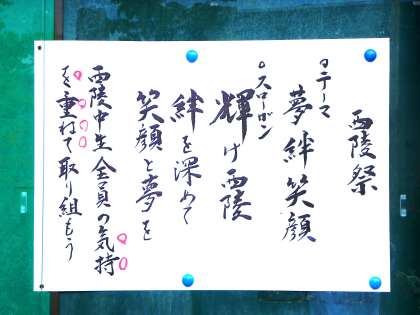 西陵祭
○テーマ
夢絆笑顔
○スローガン
輝け西陵
絆を深めて
笑顔と夢を
西陵中生全員の気持
を重ねて取り組もう